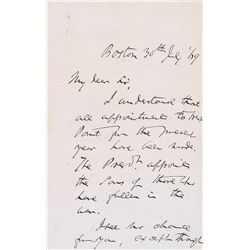 Boston 30th July '69
My dear Sir,
I understand that
all appointments to West
Point for the present
year have been made.
The Presdt. appoints
the Sons of those who
have fallen in the
war.
I see no chance
for you, except through